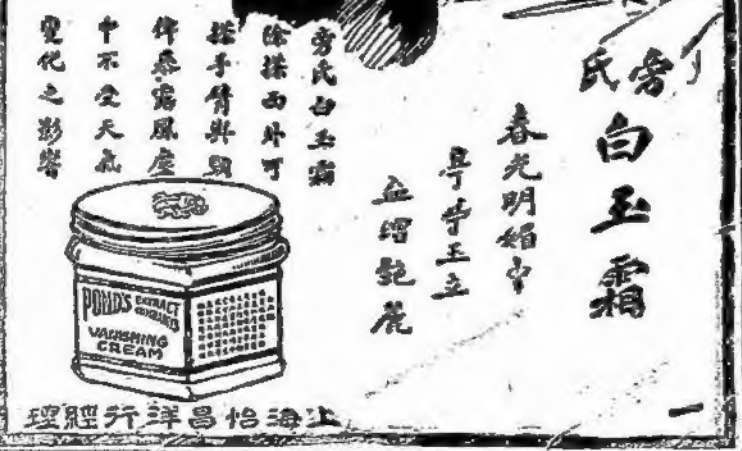 旁氏
白玉霜
春光明媚中
亭亭玉立
益增艷麗
旁氏白玉霜
除搽面外可
搽手臂與頸
俾暴露風塵
中不受天氣
變化之影響
POND'S EXTRACT
COMPANY'S
VANISHING
CREAM
上海怡昌洋行經理